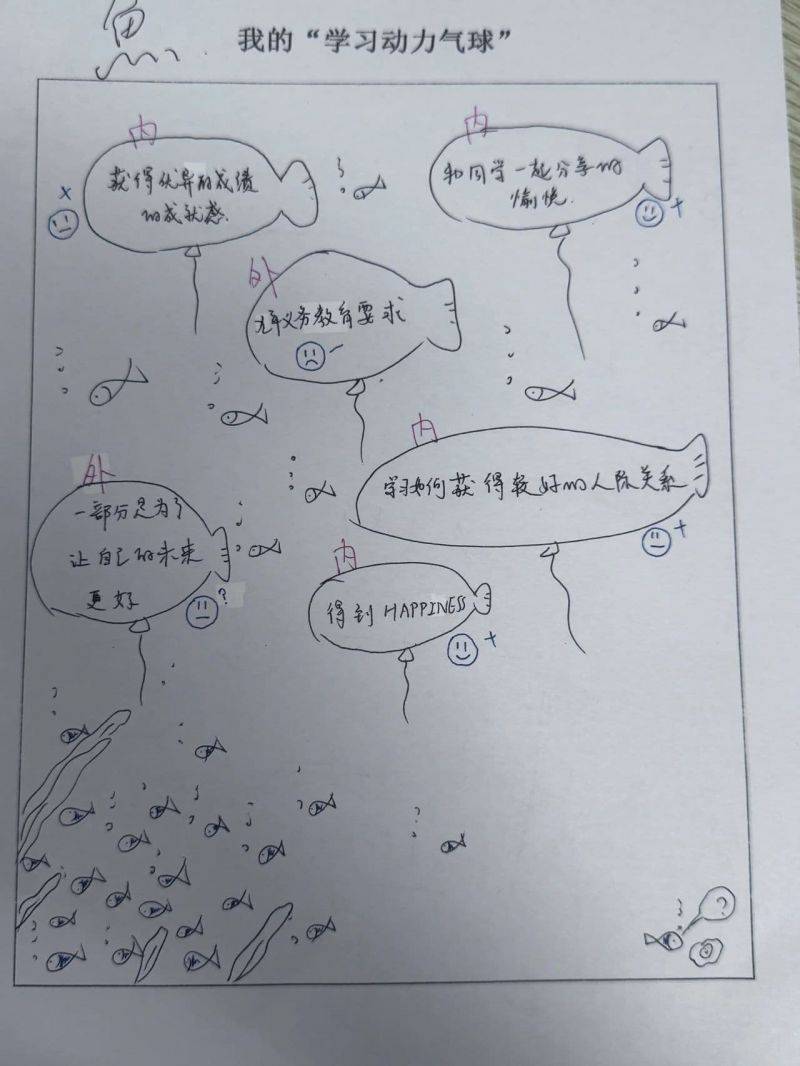 鱼
我的“学习动力气球”
内
获得优异的成绩
的成就感.
×
内
和同学一起分享的
愉悦.
+
外
九年义务教育要求
-
内
学习如何获得较好的人际关系
+
外
一部分是为了
让自己的未来
更好
?
内
得到HAPPINESS
+
?